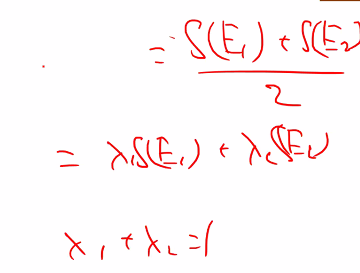 = S(E₁) + S(E₂) / 2
= λ₁S(E₁) + λ₂S(E₂)
λ₁ + λ₂ = 1